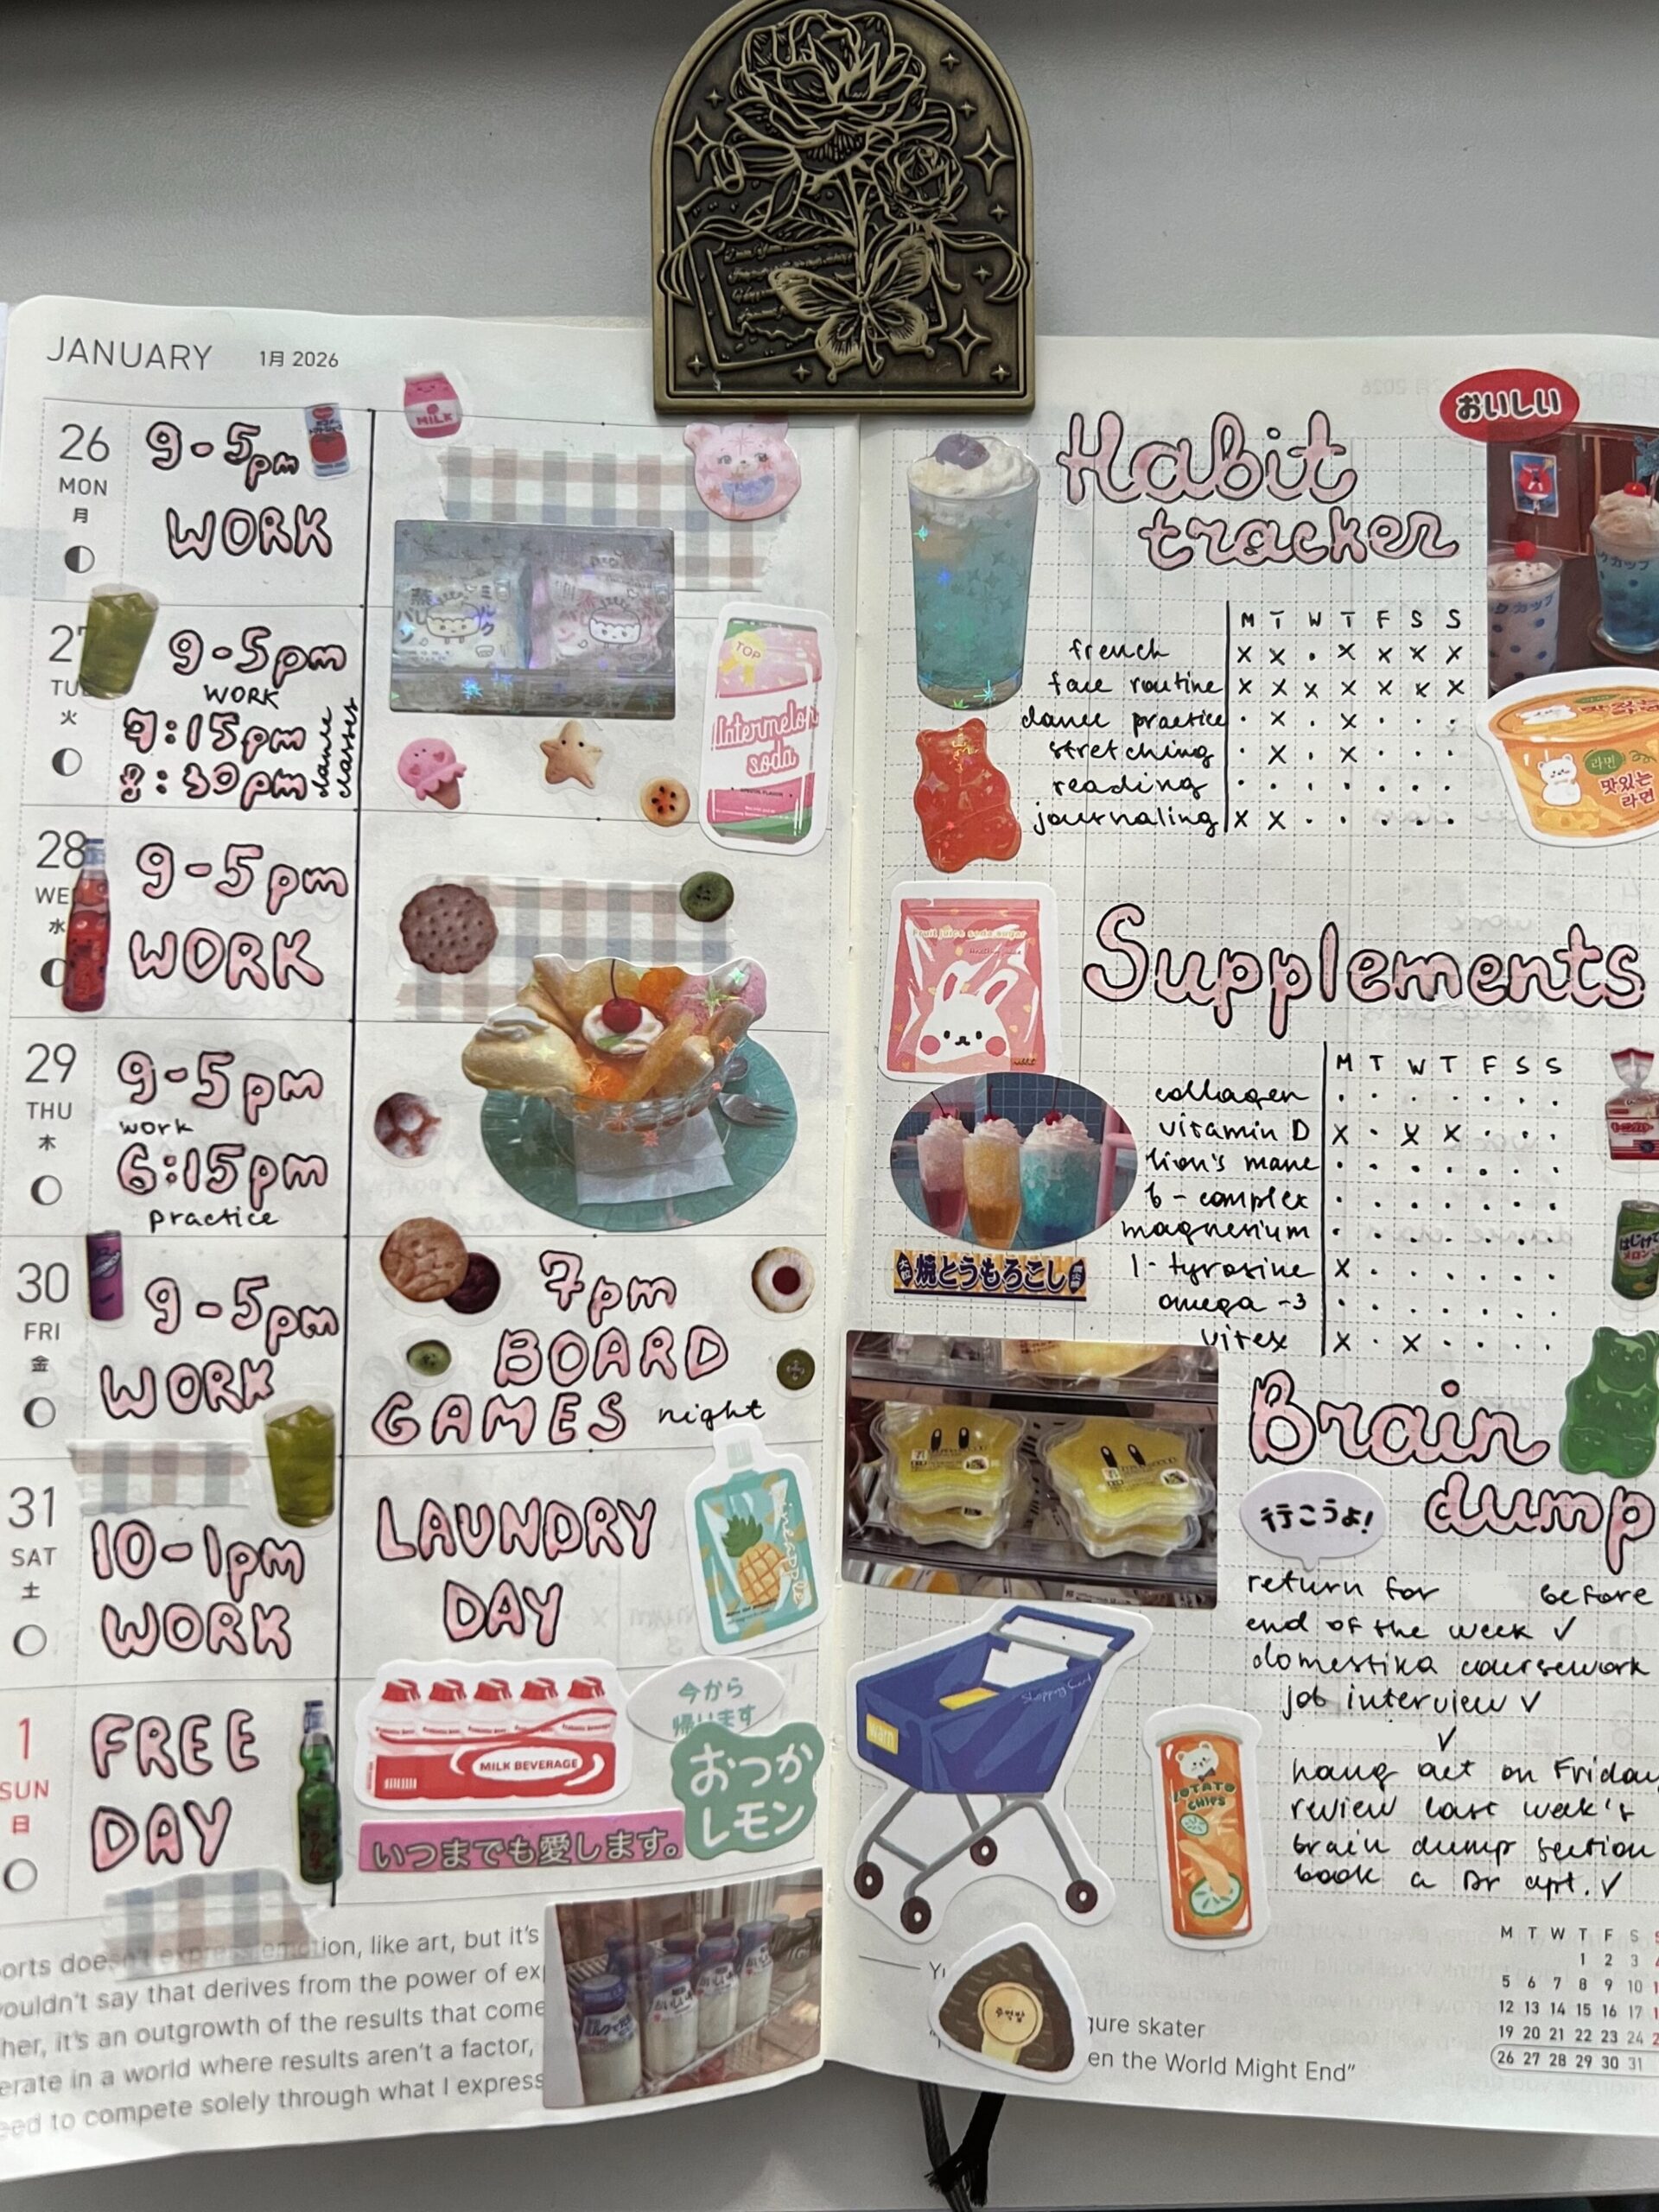 JANUARY 1月 2026
26
MON
月
9-5pm
WORK
27
火
9-5pm
WORK
7:15pm
8:30pm
dance
classes
28
WE
水
9-5pm
WORK
29
THU
木
9-5pm
work
6:15pm
practice
30
FRI
金
9-5pm
WORK
7pm
BOARD
GAMES night
31
SAT
土
10-1pm
WORK
LAUNDRY
DAY
1
SUN
日
FREE
DAY
MILK
TOP
soda
MILK BEVERAGE
今から
帰ります
おつか
レモン
いつまでも愛します。
ion, like art, but it's
ouldn't say that derives from the power of
her, it's an outgrowth of the results that come
erate in a world where results aren't a factor,
eed to compete solely through what I express
Habit
tracker
おいしい
M T W T F S S
french X X · X X X X
face routine X X X X X X X
dance practice · X · X · · ·
stretching · X · X · · ·
reading · · · · · · ·
journaling X X · · · · ·
라면
맛있는
라면
Fruit juice soda sugar
Supplements
M T W T F S S
collagen · · · · · · ·
vitamin D X · X X · · ·
lion's mane · · · · · · ·
b-complex · · · · · · ·
magnesium · · · · · · ·
l-tyrosine X · · · · · ·
omega-3 · · · · · · ·
vitex X · X · · · ·
焼とうもろこし
Brain
dump
行こうよ!
return for before
end of the week ✓
domestika coursework
job interview ✓
✓
hang out on Friday
review last week's
brain dump section
book a Dr apt. ✓
Shopping Cart
warn
POTATO
CHIPS
주먹밥
gure skater
en the World Might End”
M T W T F S S
1 2 3 4
5 6 7 8 9 10 1
12 13 14 15 16 17 1
19 20 21 22 23 24 2
26 27 28 29 30 31